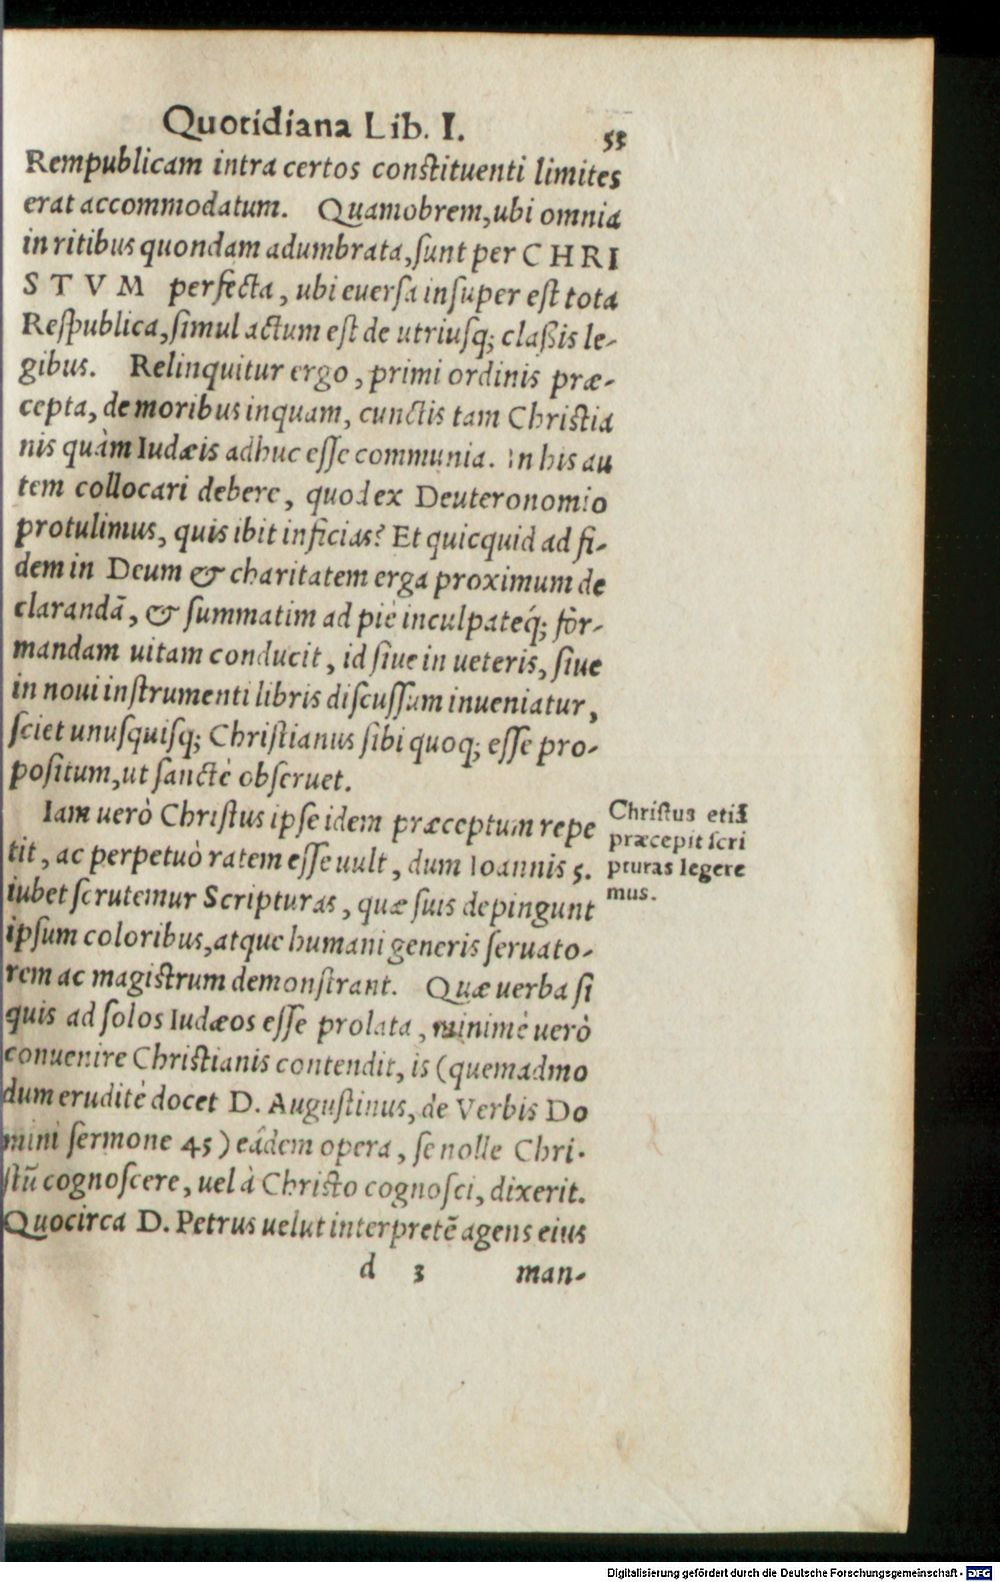 Quotidiana Lib. I. 55
Rempublicam intra certos constituenti limites
erat accommodatum. Quamobrem, ubi omnia
in ritibus quondam adumbrata, sunt per CHRI
STVM perfecta, ubi euersa insuper est tota
Respublica, simul actum est de utriusq; claßis le-
gibus. Relinquitur ergo, primi ordinis præ-
cepta, de moribus inquam, cunctis tam Christia
nis quàm Iudæis adhuc esse communia. In his au
tem collocari debere, quod ex Deuteronomio
protulimus, quis ibit inficias? Et quicquid ad fi-
dem in Deum & charitatem erga proximum de
clarandã, & summatim ad piè inculpateq́; for-
mandam uitam conducit, id siue in ueteris, siue
in noui instrumenti libris discussum inueniatur,
sciet unusquisq; Christianus sibi quoq; esse pro-
positum, ut sanctè obseruet.
Iam uerò Christus ipse idem præceptum repe
tit, ac perpetuò ratem esse uult, dum Ioannis 5.
iubet scrutemur Scripturas, quæ suis depingunt
ipsum coloribus, atque humani generis seruato-
rem ac magistrum demonstrant. Quæ uerba si
quis ad solos Iudæos esse prolata, minimè uerò
conuenire Christianis contendit, is (quemadmo
dum eruditè docet D. Augustinus, de Verbis Do
mini sermone 45) eâdem opera, se nolle Chri-
stũ cognoscere, uel à Christo cognosci, dixerit.
Quocirca D. Petrus uelut interpretẽ agens eius
d 3 man-
Christus etiã
præcepit scri
pturas legere
mus.
Digitalisierung gefördert durch die Deutsche Forschungsgemeinschaft - DFG